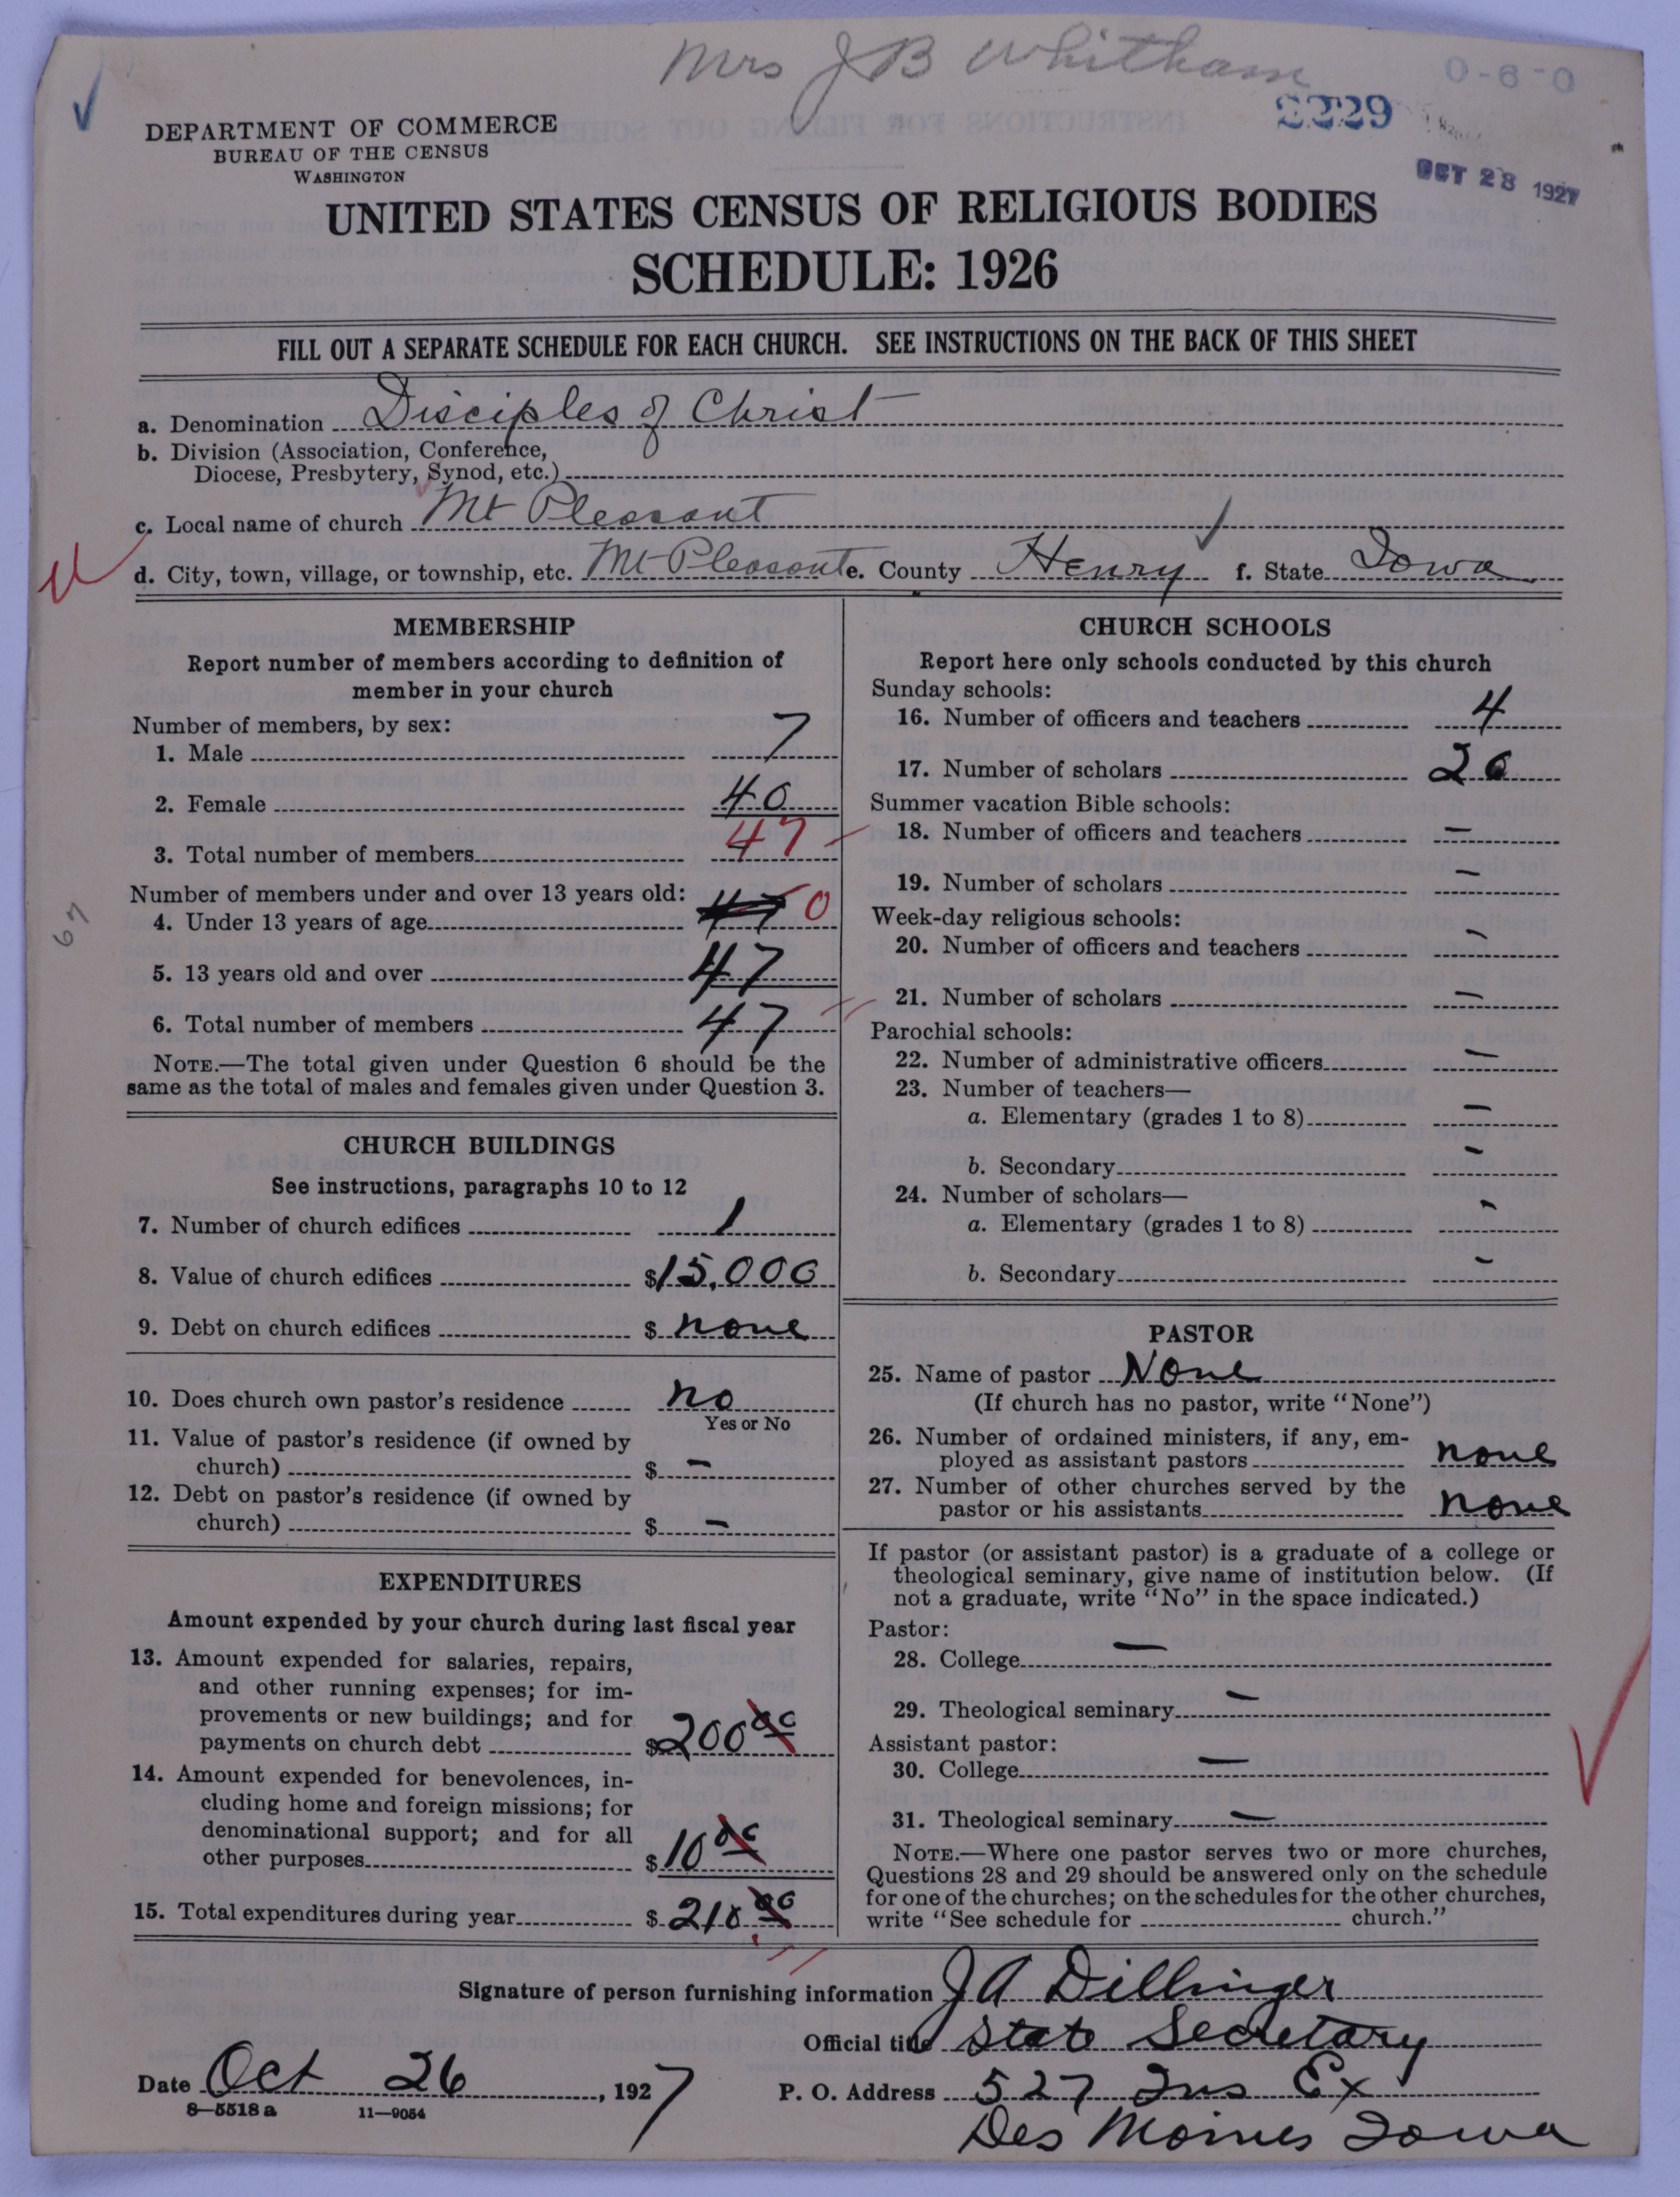 Mrs J B Whitham
0-6-0
2229
OCT 28 1927
DEPARTMENT OF COMMERCE
BUREAU OF THE CENSUS
WASHINGTON
UNITED STATES CENSUS OF RELIGIOUS BODIES
SCHEDULE: 1926
FILL OUT A SEPARATE SCHEDULE FOR EACH CHURCH. SEE INSTRUCTIONS ON THE BACK OF THIS SHEET
a. Denomination Disciples of Christ
b. Division (Association, Conference,
Diocese, Presbytery, Synod, etc.)
c. Local name of church Mt Pleasant
d. City, town, village, or township, etc. Mt Pleasant e. County Henry f. State Iowa
MEMBERSHIP
Report number of members according to definition of
member in your church
Number of members, by sex:
1. Male 7
2. Female 40
3. Total number of members 47
Number of members under and over 13 years old:
4. Under 13 years of age 47 0
5. 13 years old and over 47
6. Total number of members 47
NOTE.—The total given under Question 6 should be the
same as the total of males and females given under Question 3.
67
CHURCH BUILDINGS
See instructions, paragraphs 10 to 12
7. Number of church edifices 1
8. Value of church edifices $15,000
9. Debt on church edifices $ none
10. Does church own pastor's residence no
Yes or No
11. Value of pastor's residence (if owned by
church) $ –
12. Debt on pastor's residence (if owned by
church) $ –
EXPENDITURES
Amount expended by your church during last fiscal year
13. Amount expended for salaries, repairs,
and other running expenses; for im-
provements or new buildings; and for
payments on church debt $200 00
14. Amount expended for benevolences, in-
cluding home and foreign missions; for
denominational support; and for all
other purposes $10 00
15. Total expenditures during year $210 00
CHURCH SCHOOLS
Report here only schools conducted by this church
Sunday schools:
16. Number of officers and teachers 4
17. Number of scholars 26
Summer vacation Bible schools:
18. Number of officers and teachers –
19. Number of scholars –
Week-day religious schools:
20. Number of officers and teachers –
21. Number of scholars –
Parochial schools:
22. Number of administrative officers –
23. Number of teachers—
a. Elementary (grades 1 to 8) –
b. Secondary –
24. Number of scholars—
a. Elementary (grades 1 to 8) –
b. Secondary –
PASTOR
25. Name of pastor None
(If church has no pastor, write "None")
26. Number of ordained ministers, if any, em-
ployed as assistant pastors none
27. Number of other churches served by the
pastor or his assistants none
If pastor (or assistant pastor) is a graduate of a college or
theological seminary, give name of institution below. (If
not a graduate, write "No" in the space indicated.)
Pastor:
28. College –
29. Theological seminary –
Assistant pastor:
30. College –
31. Theological seminary –
NOTE.—Where one pastor serves two or more churches,
Questions 28 and 29 should be answered only on the schedule
for one of the churches; on the schedules for the other churches,
write "See schedule for church."
Signature of person furnishing information J A Dillinger
Official title State Secretary
Date Oct 26, 1927 P. O. Address 527 Ins Ex
8—5518 a 11—9054
Des Moines Iowa